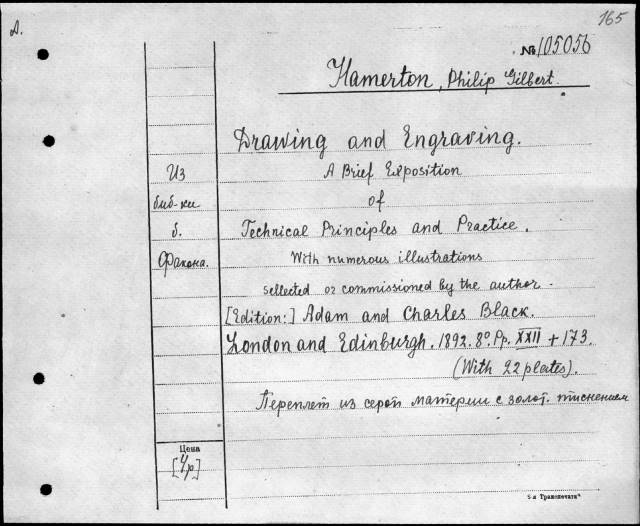 165
A.
№ 105056
Hamerton, Philip Gilbert.
Drawing and Engraving.
Из
A Brief Exposition
биб-ки
of
б.
Technical Principles and Practice.
Факона.
With numerous illustrations
sellected or commissioned by the author.
[Edition:] Adam and Charles Black.
London and Edinburgh. 1892. 8º. Pp. XXII + 173.
(With 22 plates).
Переплет из серой материи с золот. тиснением
Цена
[4р]
5-я Транспечать"